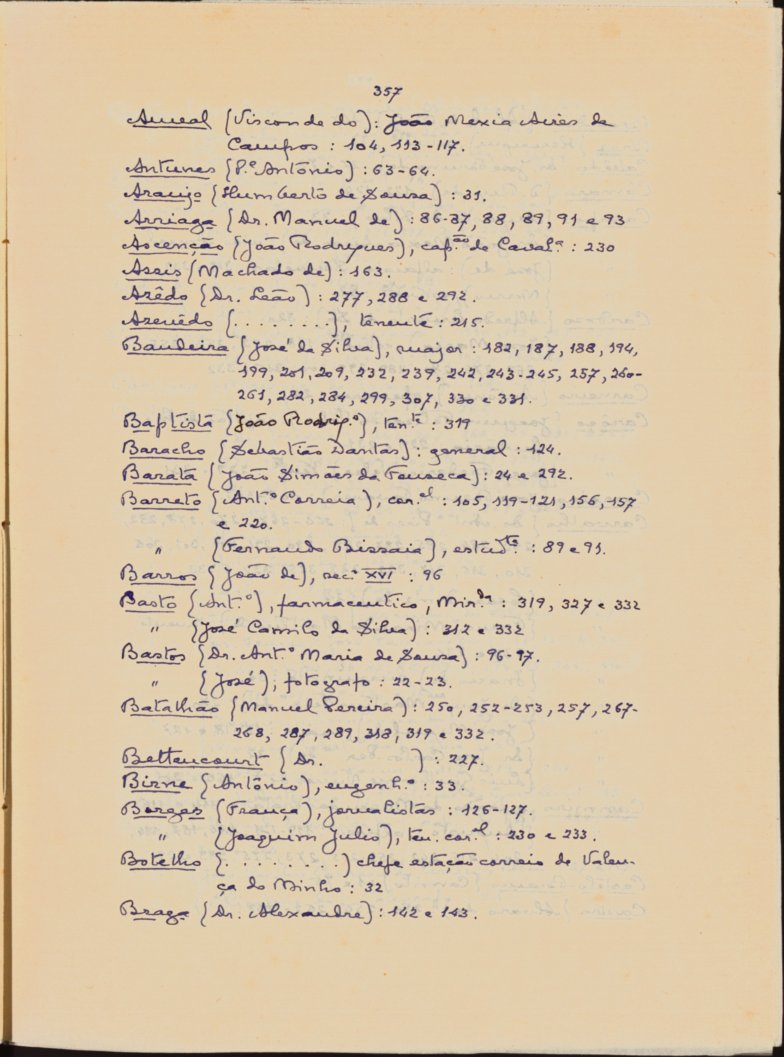 357
Ameal (Visconde do): João Mexia Aires de
Campos : 104, 113-117.
Antunes (P.e António) : 63-64.
Araujo (Humberto de Sousa) : 31.
Arriaga (Dr. Manuel de) : 86-87, 88, 89, 91 e 93
Ascenção (João Rodrigues), cap.ão de Caval.a : 230
Assis (Machado de) : 163.
Azêdo (Dr. Leão) : 277, 288 e 292.
Azevêdo (. . . . . . . .), tenente : 215.
Bandeira (José da Silva), major : 182, 187, 188, 194,
199, 201, 209, 232, 239, 242, 243-245, 257, 260-
261, 282, 284, 299, 307, 330 e 331.
Baptista (João Rodrig.o), ten.te : 319
Baracho (Sebastião Dantas) : general : 124.
Barata (João Simões da Fonseca) : 24 e 292.
Barreto (Ant.o Correia), cor.el : 105, 119-121, 156, -157
e 220.
" (Fernando Bissaia), estud.te : 89 e 91.
Barros (João de), sec.o XVI : 96
Basto (Ant.o), farmaceutico, Mir.da : 319, 327 e 332
" (José Camilo da Silva) : 312 e 332
Bastos (Dr. Ant.o Maria de Sousa) : 96-97.
" (José), fotografo : 22-23.
Batalhão (Manuel Pereira) : 250, 252-253, 257, 267-
268, 287, 289, 318, 319 e 332.
Bettencourt (Dr. ) : 227.
Birne (António), eugenh.o : 33.
Borges (França), jornalistas : 126-127.
" (Joaquim Julio), ten. cor.el : 230 e 233.
Botelho (. . . . . . . .) chefe estação correio de Valen-
ça do Minho : 32
Braga (Dr. Alexandre) : 142 e 143.